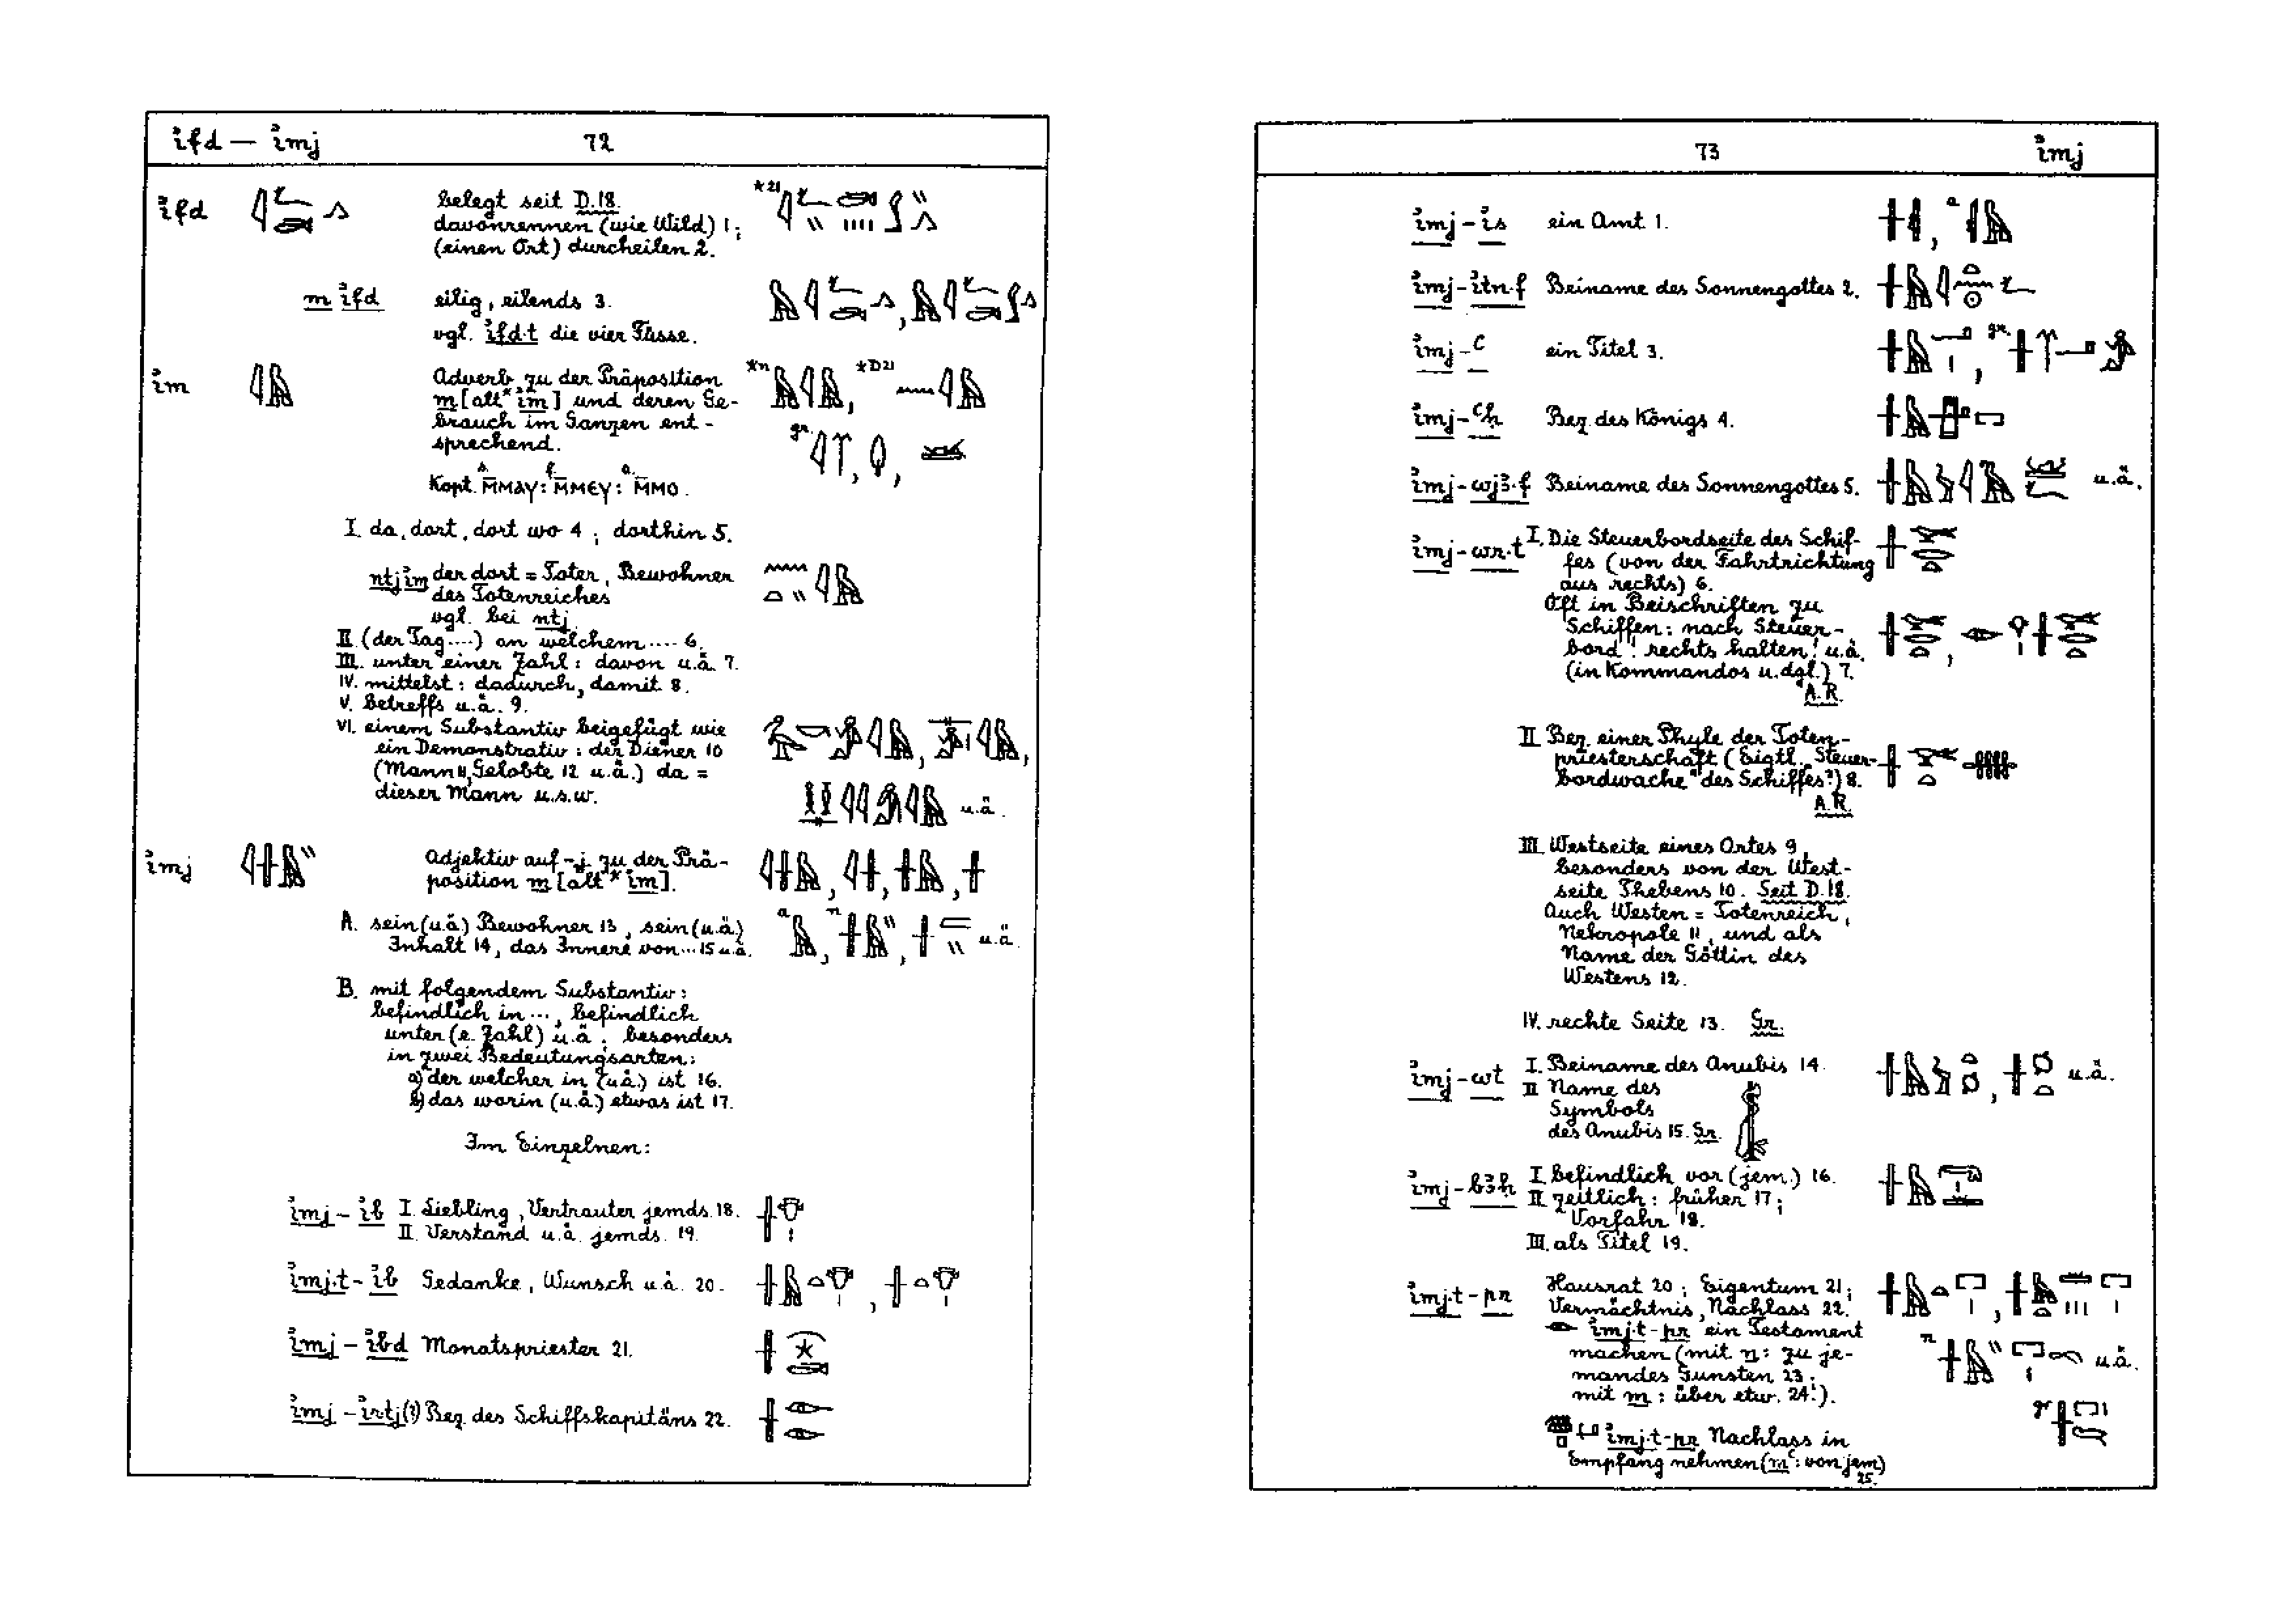 ỉfd — ỉmj 72
ỉfd belegt seit D.18.
davonrennen (wie Wild) 1;
(einen Ort) durcheilen 2.
*21
m ỉfd eilig, eilends 3.
vgl. ỉfd·t die vier Füsse.
ỉm Adverb zu der Präposition
m [alt *ỉm] und deren Ge-
brauch im Ganzen ent-
sprechend.
*n *D21
gr.
Kopt. s. M̅MAY: f. M̅MEY: a. M̅MO.
I. da, dort, dort wo 4; dorthin 5.
ntj ỉm der dort = Toter, Bewohner
des Totenreiches
vgl. bei ntj.
II. (der Tag ....) an welchem .... 6.
III. unter einer Zahl: davon u.ä. 7.
IV. mittelst: dadurch, damit 8.
V. betreffs u.ä. 9.
VI. einem Substantiv beigefügt wie
ein Demonstrativ: der Diener 10
(Mann 11, Gelobte 12 u.ä.) da =
dieser Mann u.s.w.
u.ä.
ỉmj Adjektiv auf -j zu der Prä-
position m [alt *ỉm].
A. sein (u.ä.) Bewohner 13, sein (u.ä.)
Inhalt 14, das Innere von ... 15 u.ä.
a n u.ä.
B. mit folgendem Substantiv:
befindlich in ..., befindlich
unter (e. Zahl) u.ä.; besonders
in zwei Bedeutungsarten:
a) der welcher in (u.ä.) ist 16.
b) das worin (u.ä.) etwas ist 17.
Im Einzelnen:
ỉmj – ỉb I. Liebling, Vertrauter jemds. 18.
II. Verstand u.ä. jemds. 19.
ỉmj·t – ỉb Gedanke, Wunsch u.ä. 20.
ỉmj – ỉbd Monatspriester 21.
ỉmj – ỉrtj(?) Bez. des Schiffskapitäns 22.
73 ỉmj
ỉmj – ỉs ein Amt 1.
a
ỉmj – ỉtn·f Beiname des Sonnengottes 2.
ỉmj – ꜥ ein Titel 3.
gr.
ỉmj – ꜥḥ Bez. des Königs 4.
ỉmj – wjꜣ·f Beiname des Sonnengottes 5.
u.ä.
ỉmj – wr·t I. Die Steuerbordseite des Schif-
fes (von der Fahrtrichtung
aus rechts) 6.
Oft in Beischriften zu
Schiffen: nach Steuer-
bord! rechts halten! u.ä.
(in Kommandos u.dgl.) 7.
A.R.
II. Bez. einer Phyle der Toten-
priesterschaft (Eigtl. „Steuer-
bordwache" des Schiffes?) 8.
A.R.
III. Westseite eines Ortes 9,
besonders von der West-
seite Thebens 10. Seit D.18.
Auch Westen = Totenreich,
Nekropole 11, und als
Name der Göttin des
Westens 12.
IV. rechte Seite 13. Gr.
ỉmj – wt I. Beiname des Anubis 14.
II. Name des
Symbols
des Anubis 15. Gr.
u.ä.
ỉmj – bꜣḥ I. befindlich vor (jem.) 16.
II. zeitlich: früher 17;
Vorfahr 18.
III. als Titel 19.
ỉmj·t – pr Hausrat 20; Eigentum 21;
Vermächtnis, Nachlass 22.
ỉmj·t – pr ein Testament
machen (mit n: zu je-
mandes Gunsten 23;
mit m: über etw. 24.).
n u.ä.
gr
ỉmj·t – pr Nachlass in
Empfang nehmen (mꜥ: von jem)
25.